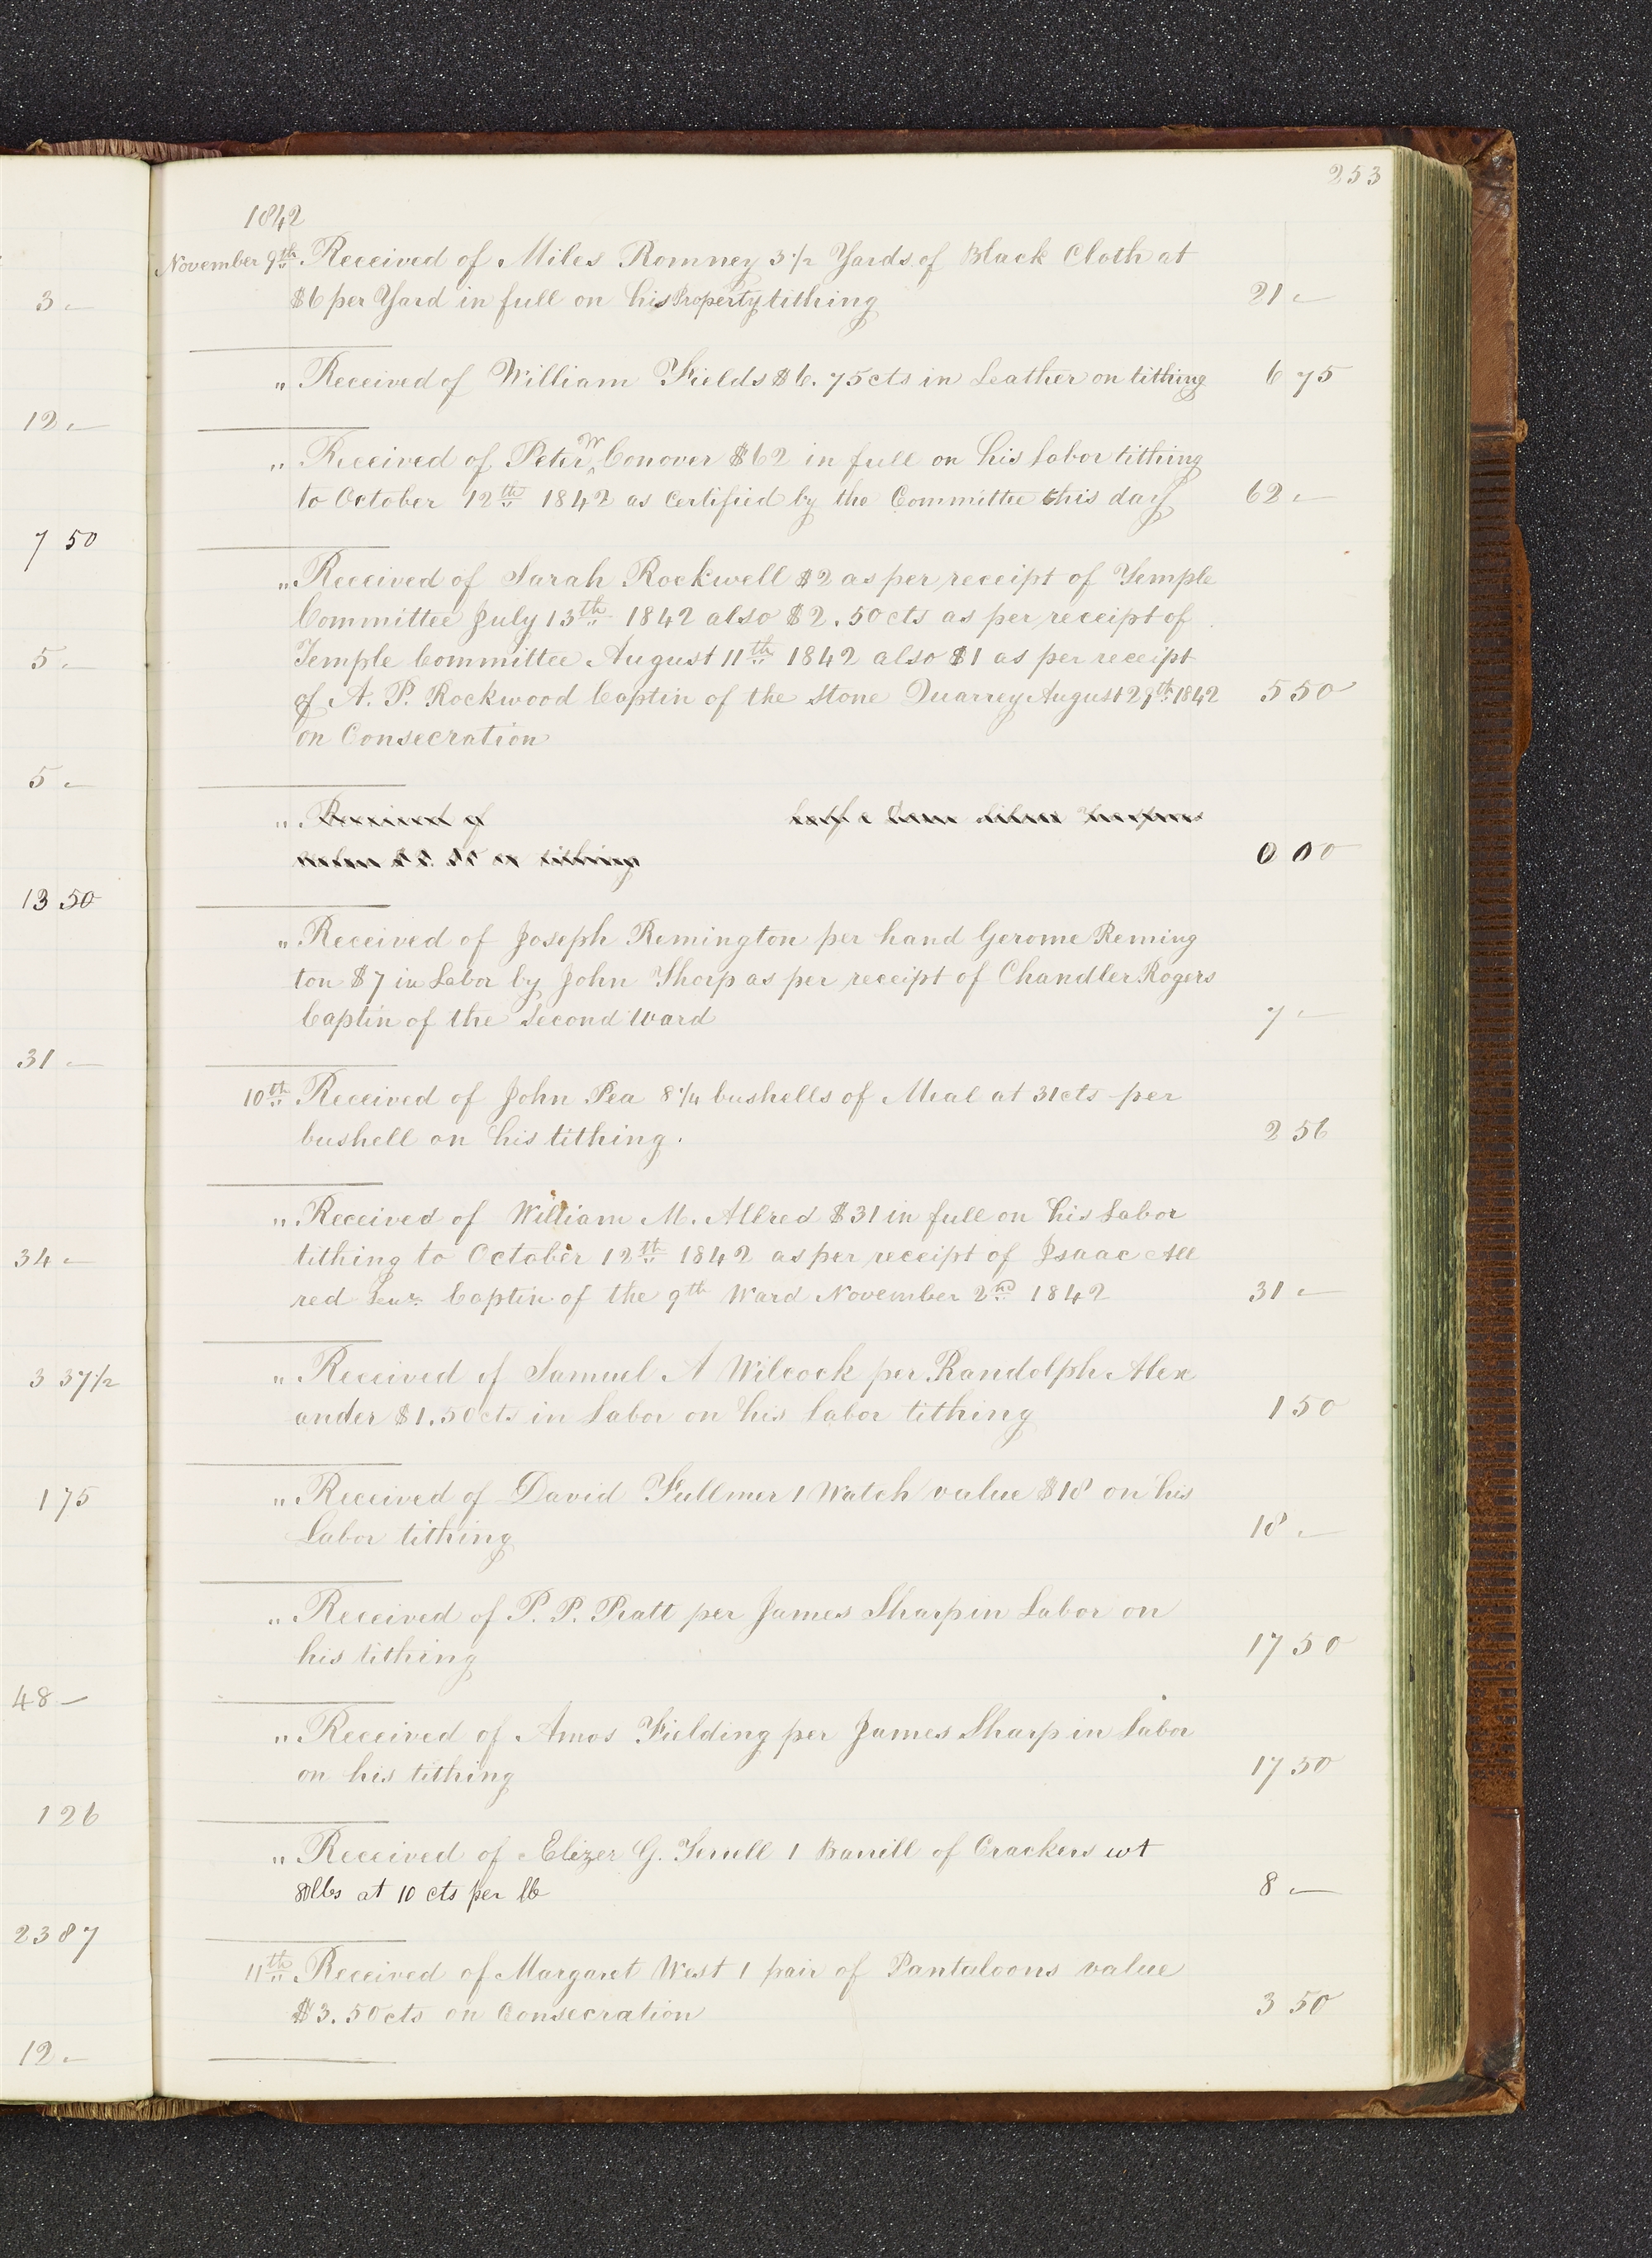 253
1842
November 9th. Received of Miles Romney 3 1/2 Yards of Black Cloth at
$6 per Yard in full on his Property tithing 21 „—
„ Received of William Fields $6.75cts in Leather on tithing 6 75
„ Received of Peter W Conover $62 in full on his Labor tithing
to October 12th 1842 as certified by the Committee this day 62 „—
„ Received of Sarah Rockwell $2 as per receipt of Temple
Committee July 13th 1842 also $2.50cts as per receipt of
Temple Committee August 11th 1842 also $1 as per receipt
of A. P. Rockwood Captin of the Stone Quarrey August 29th 1842 5 50
on Consecration
„ Received of
on tithing 0 00
„ Received of Joseph Remington per hand Gerome Reming
ton $7 in Labor by John Thorp as per receipt of Chandler Rogers
Captin of the Second Ward 7 „—
10th Received of John Pea 8 1/4 bushells of Meal at 31cts per
bushell on his tithing. 2 56
„ Received of William M. Allred $31 in full on his Labor
tithing to October 12th 1842 as per receipt of Isaac All
red Senr. Captin of the 9th Ward November 2nd 1842 31 „—
„ Received of Samuel A Wilcock per Randolph Alex
ander $1.50cts in Labor on his Labor tithing 1 50
„ Received of David Fullmer 1 Watch value $18 on his
Labor tithing 18 „—
„ Received of P. P. Pratt per James Sharp in Labor on
his tithing 17 50
„ Received of Amos Fielding per James Sharp in Labor
on his tithing 17 50
„ Received of Elizer G. Terrill 1 Barrill of Crackers wt
80lbs at 10 cts per lb 8 „—
11th Received of Margaret West 1 pair of Pantaloons value
$3.50cts on Consecration 3 50
3 „—
12 „—
7 50
5 „—
5 „—
13 50
31 „—
34 „—
3 37 1/2
1 75
48 —
1 26
23 87
12 „—